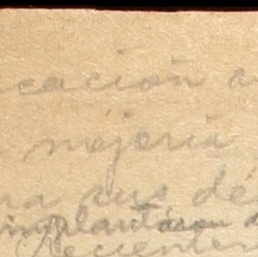 cación a
mejoría
na sus de
implantaron d
Recientem